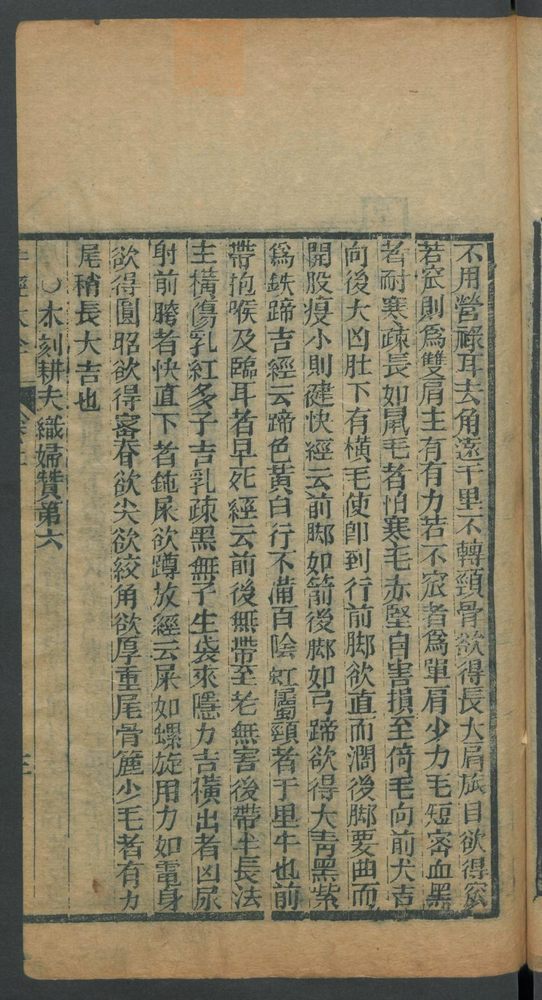 不用營祿耳去角遠千里不轉頸骨欲得長大肩旅目欲得㝮
若㝮則爲雙肩主有有力若不㝮者爲單肩少力毛短密血黑
者耐寒疎長如鼠毛者怕寒毛赤堅自害損至倚毛向前犬吉
向後大凶肚下有橫毛使卽到行前脚欲直而濶後脚要曲而
開股瘦小則健快經云前脚如箭後脚如弓蹄欲得大靑黑紫
爲鉄蹄吉經云蹄色黃白行不滿百陰虹屬頸者于里牛也前
帶抱喉及臨耳者早死經云前後無帶至老無害後帶半長法
主橫傷乳紅多子吉乳疎黑無子生袋來隱力吉橫出者凶尿
射前胯者快直下者鈍屎欲蹲放經云屎如螺旋用力如電身
欲得圓眼欲得密春欲尖欲絞角欲厚重尾骨麄少毛者有力
尾稍長大吉也
○木刻耕夫織婦贊第六
牛經大全